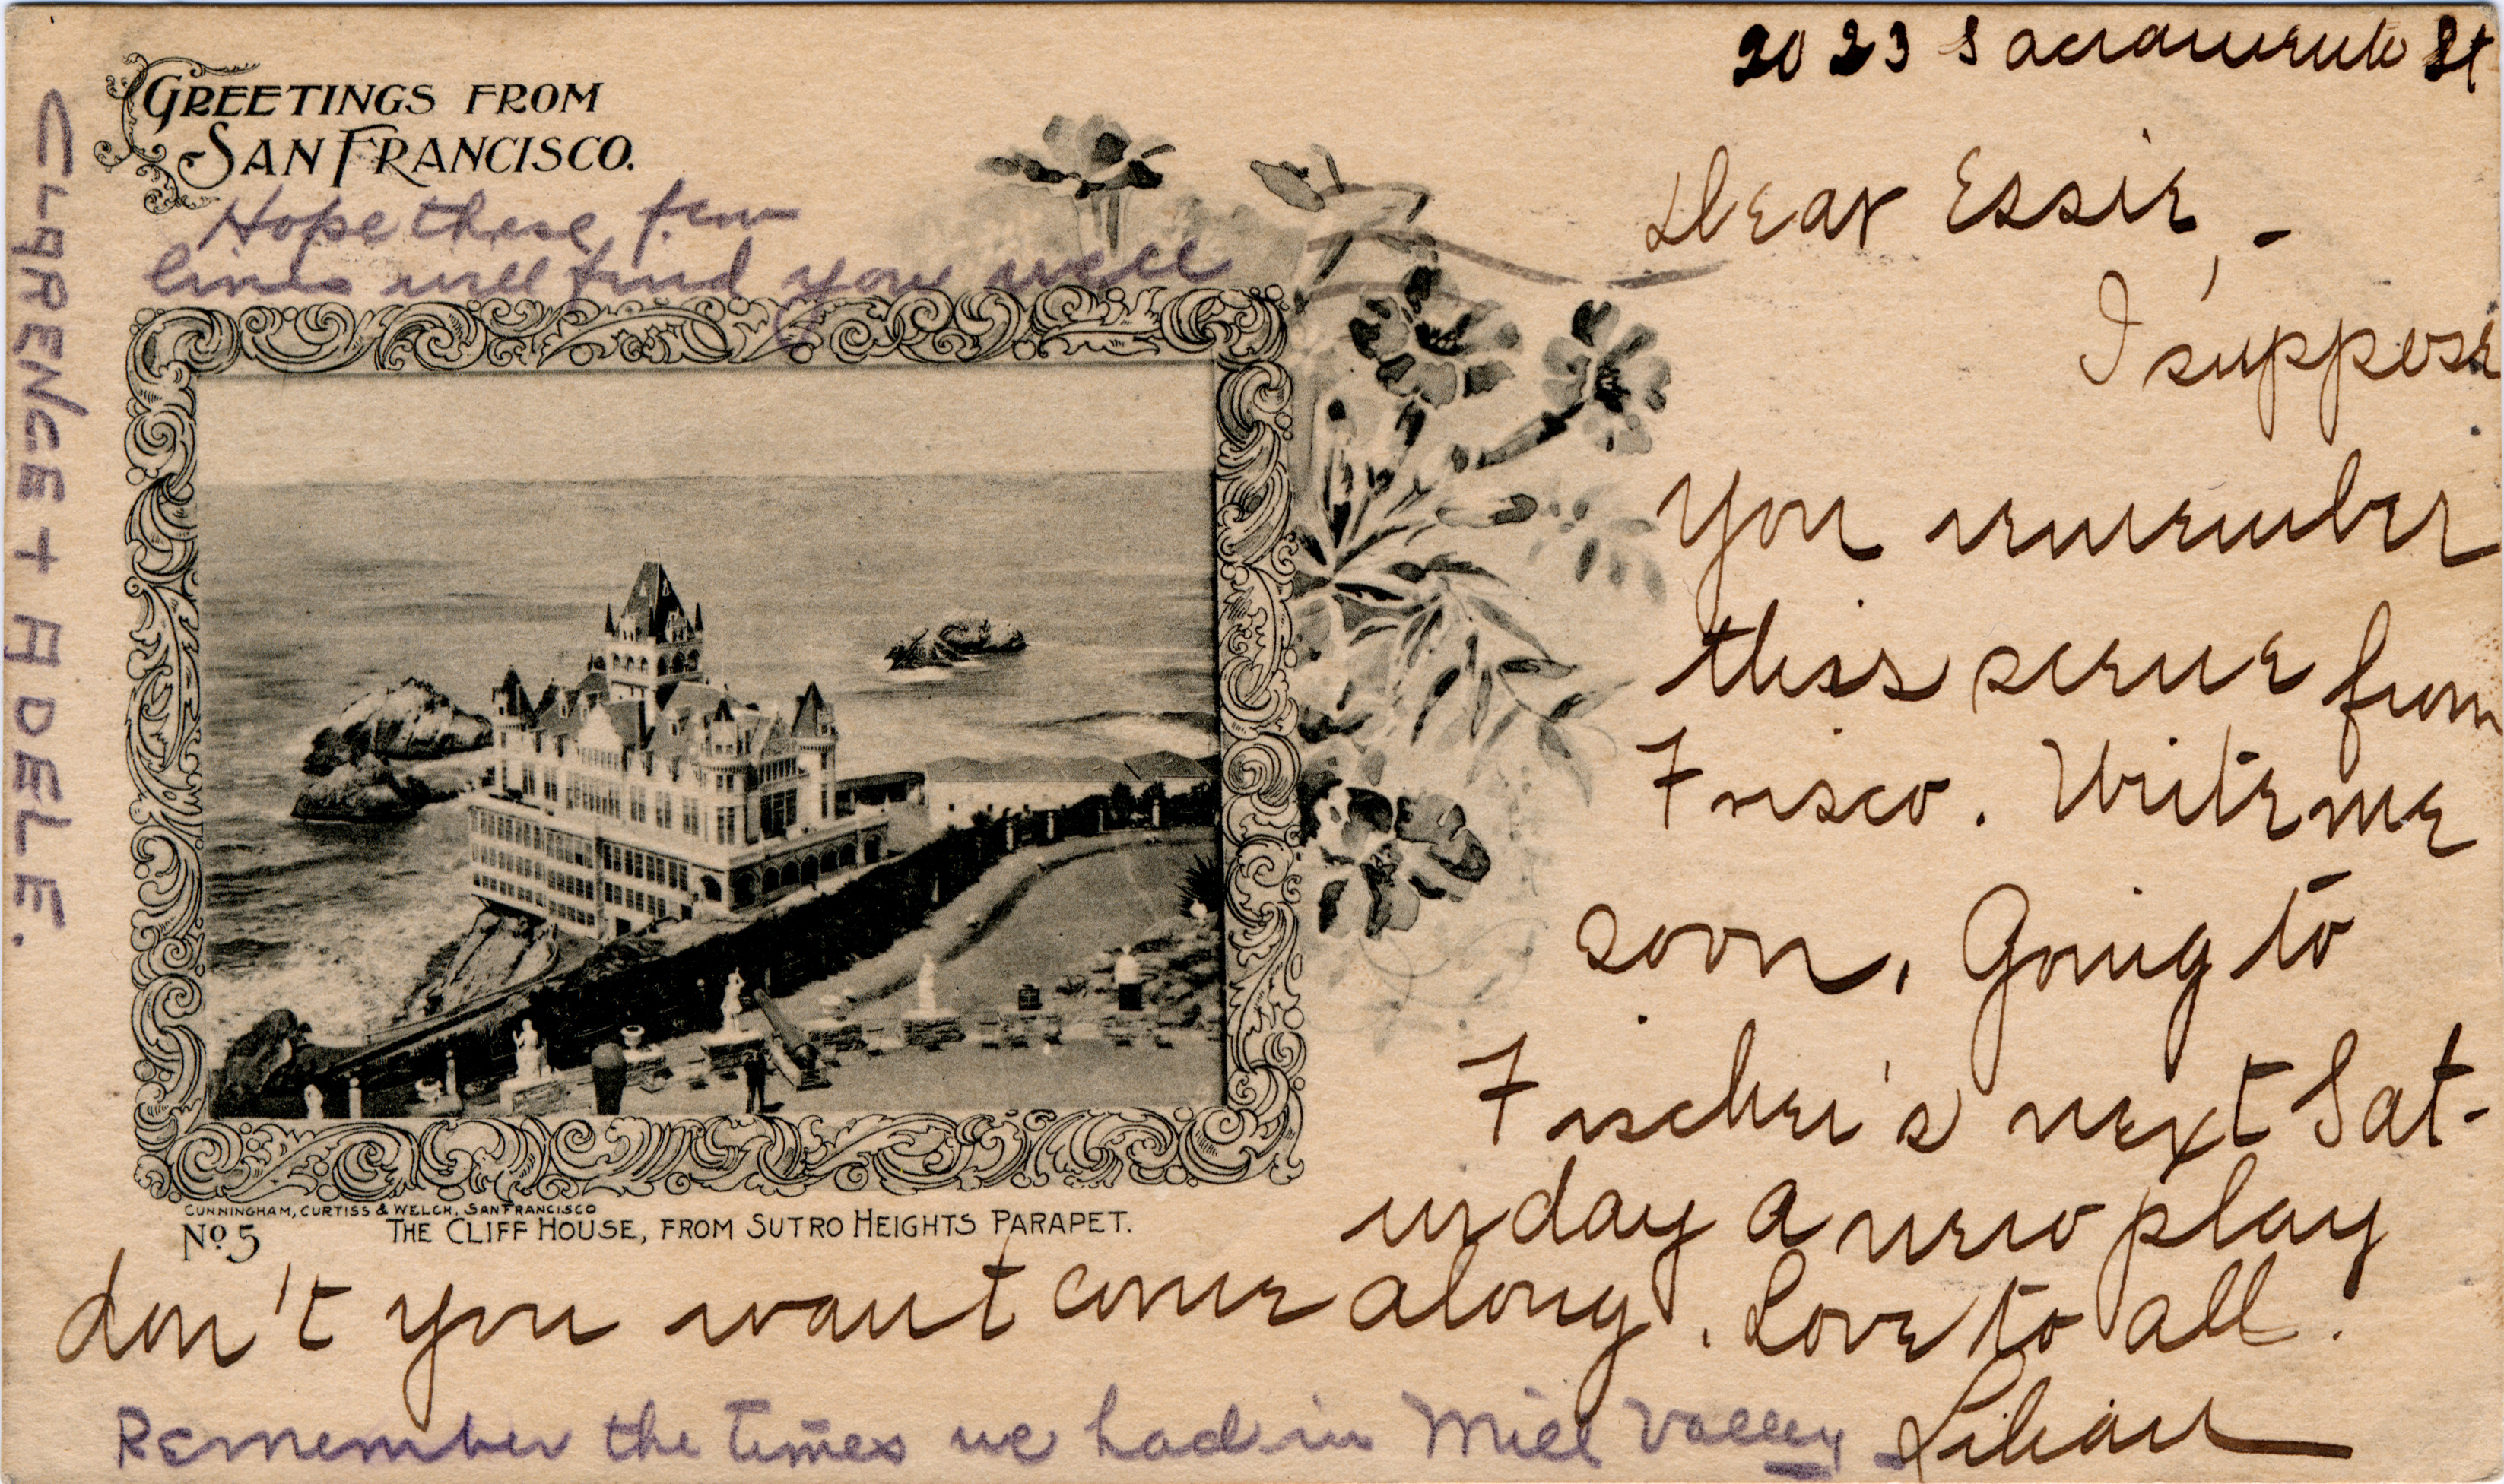 GREETINGS FROM
SAN FRANCISCO.
Hope these few
lines will find you well
CLARENCE + ADELE.
CUNNINGHAM, CURTISS & WELCH, SAN FRANCISCO
No. 5
THE CLIFF HOUSE, FROM SUTRO HEIGHTS PARAPET.
2023 Sacramento St
Dear Essie, -
I suppose
you remember
this scene from
Frisco. Write me
soon. Going to
Fischer's next Sat-
urday a new play
don't you want come along. Love to all.
Lilian
Remember the times we had in Mill Valley